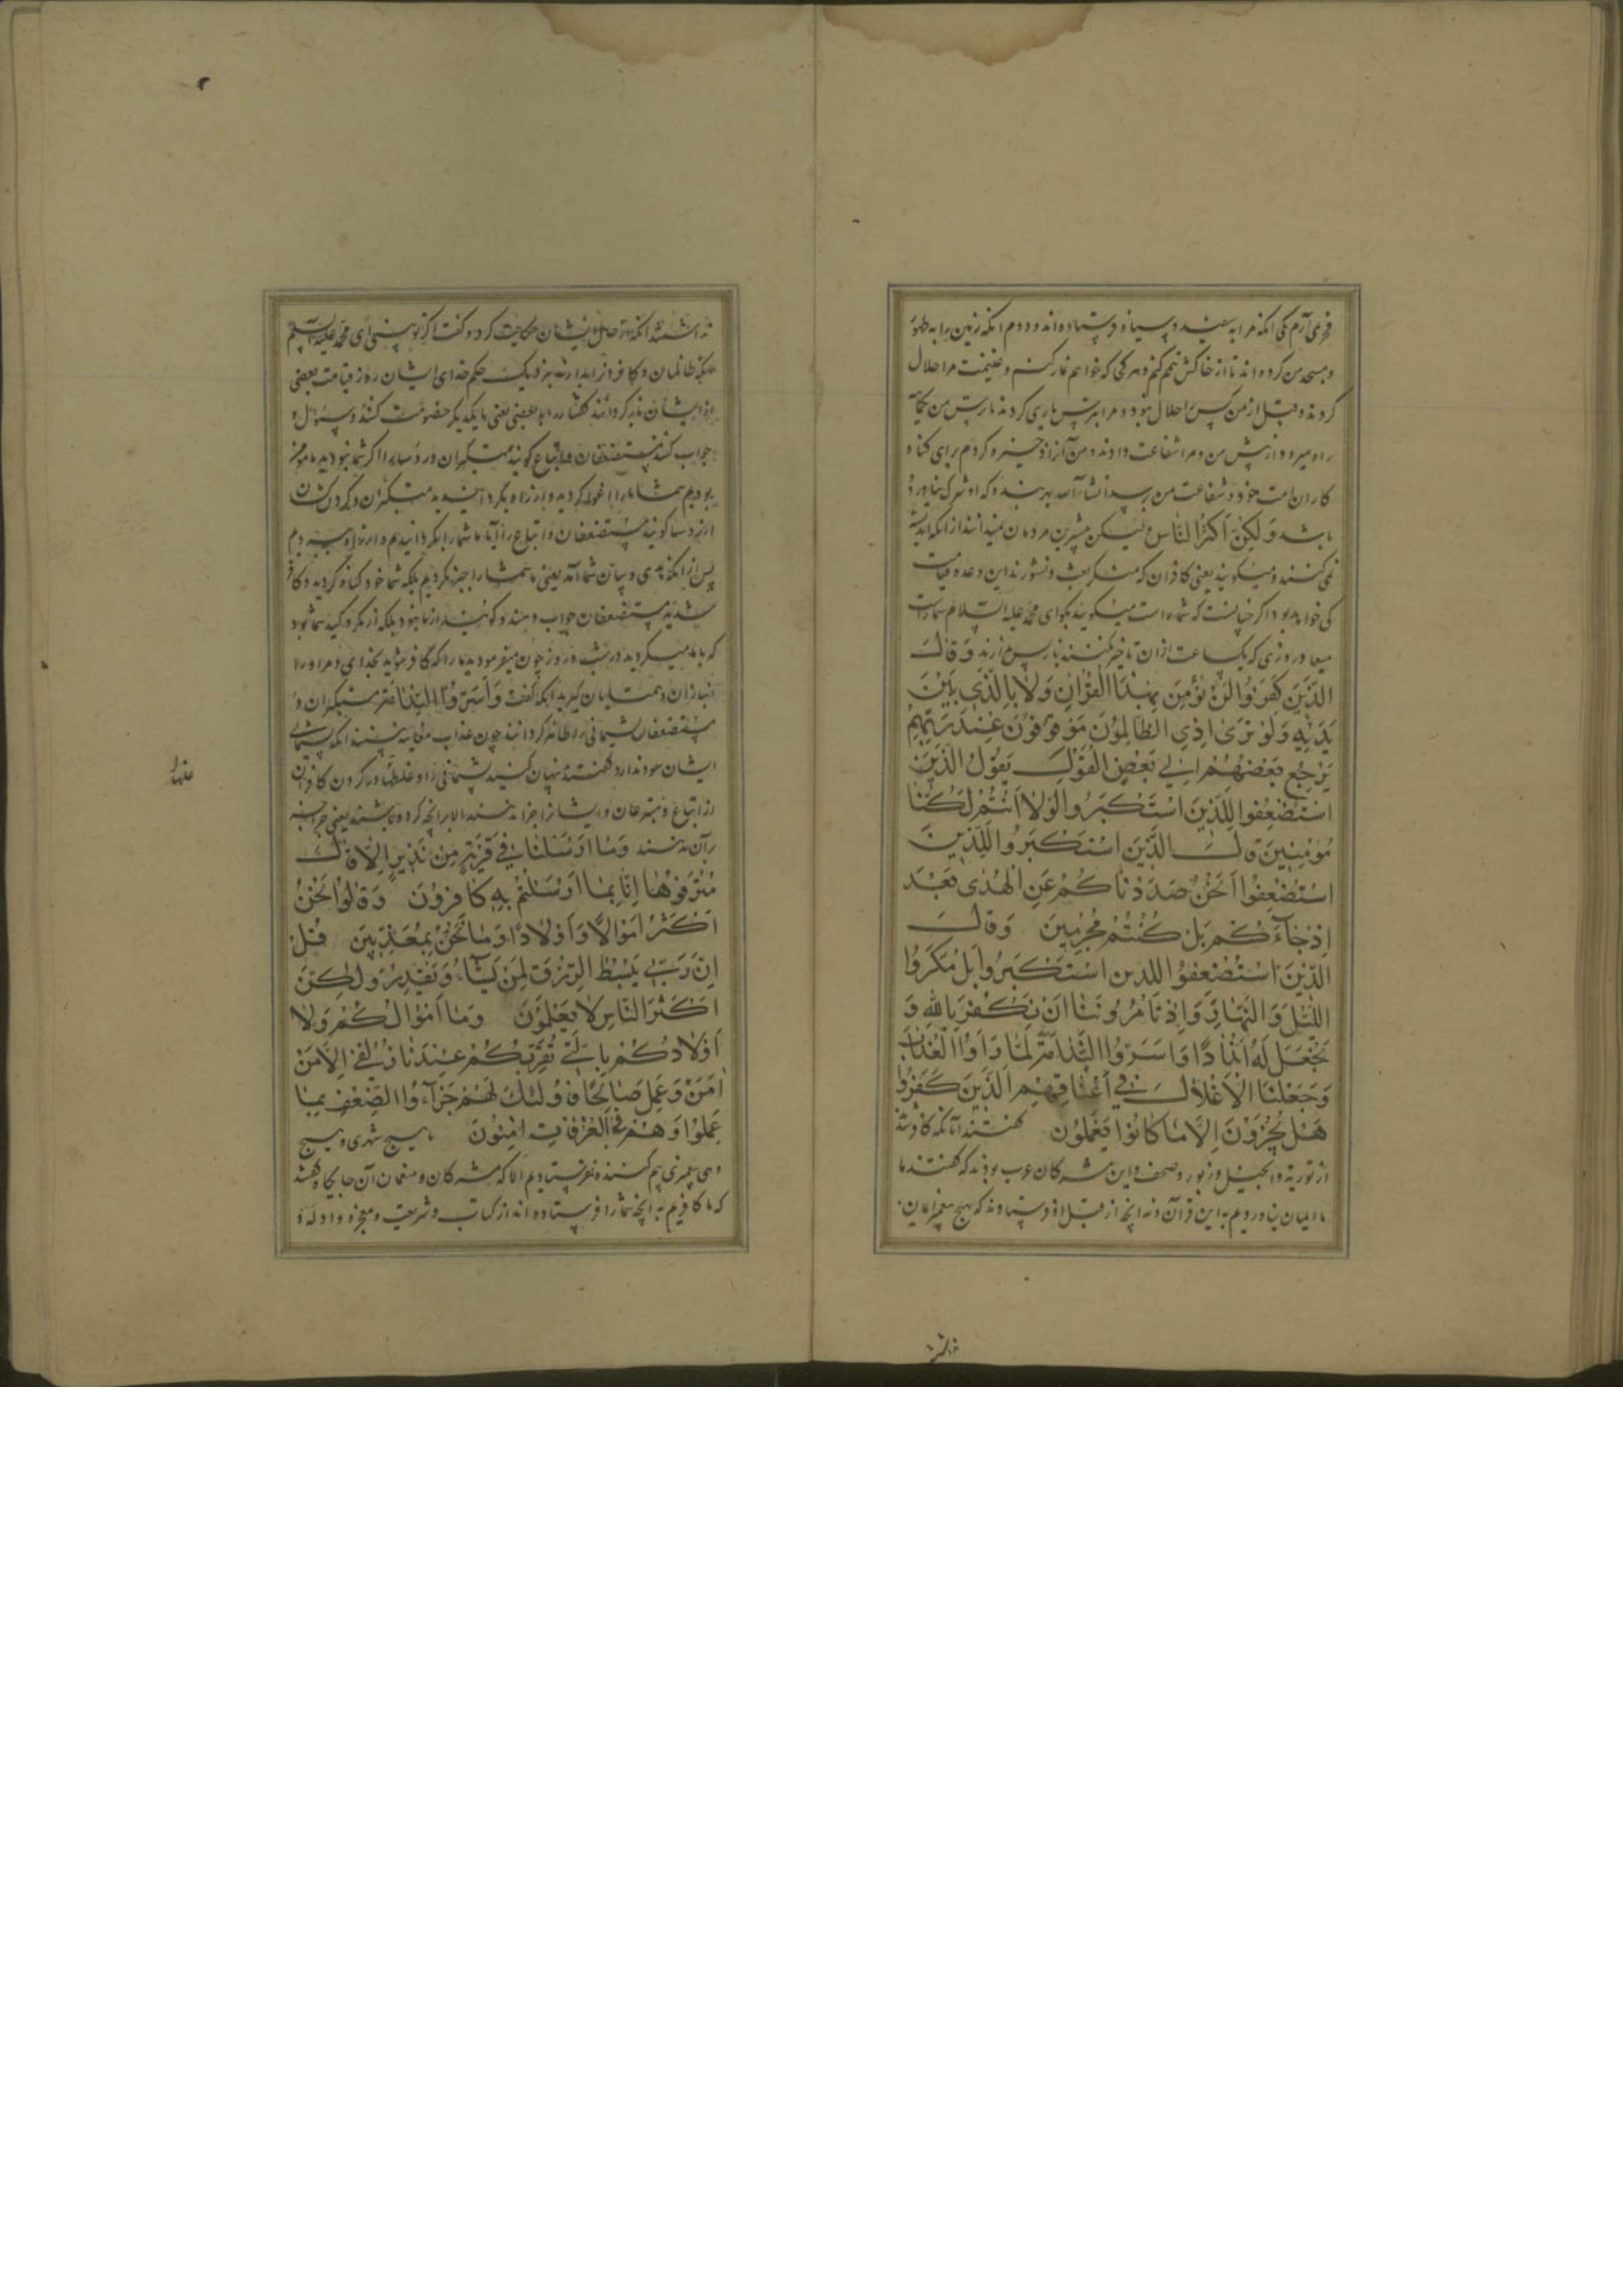 فخر می آرم یکی آنکه مرا به سفید و سیاه فرستاده اند و دوم آنکه زمین را به طهور
و مسجد من کرده اند تا از خاکش تیمم کنم و هر کجا که خواهم نماز کنم و غنیمت مرا حلال
کردند و قبل از من کس را حلال نبود و مرا بترس یاری کردند تا ترس من یکماهه
راه میرود از پیش من و مرا شفاعت دادند و من آنرا ذخیره کردم برای گناه
کاران امت خود و شفاعت من برسد انشاء الله بهر بنده که او شرک نیاورده
باشد وَلٰكِنَّ أَكْثَرَ النَّاسِ ولیکن بیشترین مردمان نمیدانند از آنکه اندیشه
نمی کنند و میگویند یعنی کافران که منکر بعث و نشورند این وعده قیامت
کی خواهد بود اگر چنانست که شما راست میگویید بگو ای محمد علیه السلام شما راست
میعاد روزی که یکساعت ازان تاخیر نکنند و نا پس دارند وَقَالَ
الَّذِينَ كَفَرُوا لَنْ نُؤْمِنَ بِهٰذَا الْقُرْآنِ وَلَا بِالَّذِي بَيْنَ
يَدَيْهِ وَلَوْ تَرَىٰ إِذِ الظَّالِمُونَ مَوْقُوفُونَ عِنْدَ رَبِّهِمْ
يَرْجِعُ بَعْضُهُمْ إِلَىٰ بَعْضٍ الْقَوْلَ يَقُولُ الَّذِينَ
اسْتُضْعِفُوا لِلَّذِينَ اسْتَكْبَرُوا لَوْلَا أَنْتُمْ لَكُنَّا
مُؤْمِنِينَ قَالَ الَّذِينَ اسْتَكْبَرُوا لِلَّذِينَ
اسْتُضْعِفُوا أَنَحْنُ صَدَدْنَاكُمْ عَنِ الْهُدَىٰ بَعْدَ
إِذْ جَاءَكُمْ بَلْ كُنْتُمْ مُجْرِمِينَ وَقَالَ
الَّذِينَ اسْتُضْعِفُوا لِلَّذِينَ اسْتَكْبَرُوا بَلْ مَكْرُ
اللَّيْلِ وَالنَّهَارِ وَإِذْ تَأْمُرُونَنَا أَنْ نَكْفُرَ بِاللّٰهِ وَ
نَجْعَلَ لَهُ أَنْدَادًا وَأَسَرُّوا النَّدَامَةَ لَمَّا رَأَوُا الْعَذَابَ
وَجَعَلْنَا الْأَغْلَالَ فِي أَعْنَاقِ الَّذِينَ كَفَرُوا
هَلْ يُجْزَوْنَ إِلَّا مَا كَانُوا يَعْمَلُونَ گفتند آنانکه کافر شدند
از توریة و انجیل و زبور و صحف و این مشرکان عرب بودند که گفتند ما
ما ایمان نیاوردیم به این قرآن و نه آنچه از قبل او فرستادند که هیچ پیغمبر ایمان
حال ایشان حکایت کرد و گفت اگر تو بینی ای محمد علیه السلام
ظالمان و کافران را بداشته نزدیک حکم خدای ایشان روز قیامت بعضی
از ایشان گفتار را با بعضی یعنی با یکدیگر خصومت کنند و سوال و
جواب کنند مستضعفان و اتباع گویند متکبران و رؤسا را اگر شما نبودید ما مومن
بودیم شما ما را اغوا کردید و از راه بگردانیدید متکبران و گردن کشان
از رؤسا گویند مستضعفان و اتباع را آیا ما شما را بگردانیدیم و از راه ببردیم
پس از آنکه هدی و بیان شما آمد یعنی ما شما را جبر نکردیم بلکه شما خود گناه کردید و کافر
شدید مستضعفان جواب دهند و گویند از ما نبود بلکه از مکر و کید شما بود
که با ما میکردید در شب و روز چون میفرمودید ما را که کافر شوید بخدای و مر او را
انبازان و همتایان گیرید آنگه گفت وَأَسَرُّوا النَّدَامَةَ متکبران و
مستضعفان پشیمانی را ظاهر کردانند چون عذاب معاینه بینند آنکه پشیمانی
ایشان سود ندارد گفتند پنهان کنید پشیمانی را و غلها در گردن کافران
از اتباع و متبوعان و ایشان را جزا ندهند الا بر آنچه کرده باشند یعنی جزا
بر آن دهند وَمَا أَرْسَلْنَا فِي قَرْيَةٍ مِنْ نَذِيرٍ إِلَّا قَالَ
مُتْرَفُوهَا إِنَّا بِمَا أُرْسِلْتُمْ بِهِ كَافِرُونَ وَقَالُوا نَحْنُ
أَكْثَرُ أَمْوَالًا وَأَوْلَادًا وَمَا نَحْنُ بِمُعَذَّبِينَ قُلْ
إِنَّ رَبِّي يَبْسُطُ الرِّزْقَ لِمَنْ يَشَاءُ وَيَقْدِرُ وَلٰكِنَّ
أَكْثَرَ النَّاسِ لَا يَعْلَمُونَ وَمَا أَمْوَالُكُمْ وَلَا
أَوْلَادُكُمْ بِالَّتِي تُقَرِّبُكُمْ عِنْدَنَا زُلْفَىٰ إِلَّا مَنْ
آمَنَ وَعَمِلَ صَالِحًا فَأُولٰئِكَ لَهُمْ جَزَاءُ الضِّعْفِ بِمَا
عَمِلُوا وَهُمْ فِي الْغُرُفَاتِ آمِنُونَ ما هیچ شهری و هیچ
دهی پیغمبری بیم کننده نفرستادیم الا که مشرکان و منعمان آن جایگاه گفتند
که ما کافریم به آنچه شما را فرستاده اند از کتاب و شریعت و معجزه و ادله و